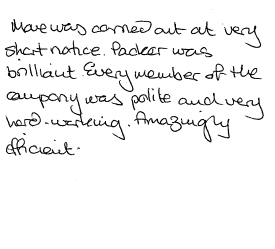 Move was carried out at very
short notice. Packer was
brilliant. Every member of the
company was polite and very
hard-working. Amazingly
efficient.